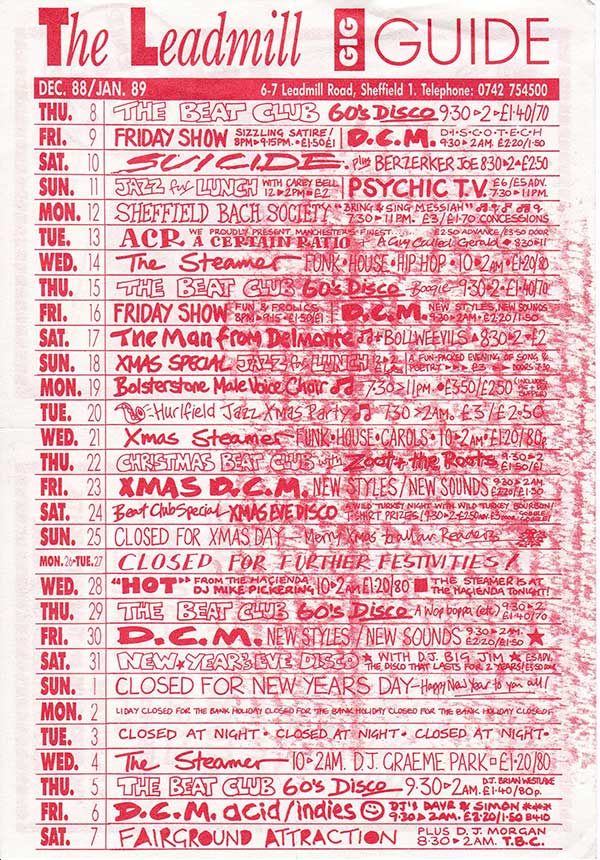 The Leadmill GIG GUIDE
DEC. 88/JAN. 89 6-7 Leadmill Road, Sheffield 1. Telephone: 0742 754500
THU. 8 THE BEAT CLUB 60's Disco 9·30▸2▸£1·40/70
FRI. 9 FRIDAY SHOW SIZZLING SATIRE/ 8PM▸9·15PM.•£1·50/£1 D.C.M. D·I·S·C·O·T·E·C·H 9·30▸2AM. £2·20/1·50
SAT. 10 SUICIDE. plus BERZERKER JOE 8·30▸2•£2·50
SUN. 11 JAZZ for LUNCH WITH CAREY BELL 12▸2PM▸£2 PSYCHIC T.V. £6/£5 ADV. 7·30▸11PM
MON. 12 SHEFFIELD BACH SOCIETY "BRING & SING MESSIAH" 7·30▸11PM. £3/£1·70 CONCESSIONS
TUE. 13 ACR WE PROUDLY PRESENT MANCHESTER'S FINEST.... A CERTAIN RATIO £2·50 ADVANCE/£3·50 DOOR + A Guy Called Gerald • 8·30▸11
WED. 14 The Steamer FUNK·HOUSE·HIP HOP·10▸2AM•£1·20/80
THU. 15 THE BEAT CLUB 60's Disco Boogie 9·30▸2·£1·40/70
FRI. 16 FRIDAY SHOW FUN & FROLICS 8PM▸9·15·£1·50/£1 D.C.M. NEW STYLES, NEW SOUNDS 9·30▸2AM•£2·20/1·50
SAT. 17 The Man from Delmonte + BOLLWEEVILS ▲ 8·30▸2▸£2
SUN. 18 XMAS SPECIAL JAZZ for LUNCH 12▸2 A FUN-PACKED EVENING OF SONG & POETRY £3 DOORS 7·30
MON. 19 Bolsterstone Male Voice Choir 7·30▸11PM.•£3·50/£2·50 (INCLUDES PIE + PEA SUPPER)
TUE. 20 Hurlfield Jazz Xmas Party 7·30▸2AM. £3/£2·50
WED. 21 Xmas Steamer FUNK·HOUSE·CAROLS·10▸2AM•£1·20/80p.
THU. 22 CHRISTMAS BEAT CLUB with Zoot + the Roots 9·30▸2 £1·50/£1
FRI. 23 XMAS D.C.M. NEW STYLES/NEW SOUNDS 9·30▸2AM. £2·20/£1·50
SAT. 24 Beat Club Special XMAS EVE DISCO WILD TURKEY NIGHT WITH WILD TURKEY BOURBON/ T-SHIRT PRIZES/9·30▸2•£2·50 ADV. £3 DOOR
SUN. 25 CLOSED FOR XMAS DAY — Merry Xmas to all our Readers
MON. 26•TUE. 27 CLOSED FOR FURTHER FESTIVITIES!
WED. 28 "HOT" FROM THE HAÇIENDA DJ MIKE PICKERING 10▸2AM £1·20/80 ■ THE STEAMER IS AT THE HAÇIENDA TONIGHT!
THU. 29 THE BEAT CLUB 60's Disco A Wop boppa (etc.) 9·30▸2 £1·40/70
FRI. 30 D.C.M. NEW STYLES/NEW SOUNDS 9·30▸2AM. £2·20/£1·50 ★
SAT. 31 NEW★YEAR'S EVE DISCO★ WITH D.J. BIG JIM ★ £3 ADV. THE DISCO THAT LASTS FOR 2 YEARS! £3·50 DOOR
SUN. 1 CLOSED FOR NEW YEARS DAY—Happy New Year to you all!
MON. 2 LIDAY CLOSED FOR THE BANK HOLIDAY CLOSED FOR THE BANK HOLIDAY CLOSED FOR THE BANK HOLIDAY CLOSED F
TUE. 3 CLOSED AT NIGHT • CLOSED AT NIGHT • CLOSED AT NIGHT•
WED. 4 The Steamer 10▸2AM. D.J. GRAEME PARK □ £1·20/80
THU. 5 THE BEAT CLUB 60's Disco 9·30▸2AM. D.J. BRIAN WESTLAKE £1·40/80p.
FRI. 6 D.C.M. acid/indies DJ'S DAVE & SIMON *** 9·30▸2AM. £2·20/1·50 B4 10
SAT. 7 FAIRGROUND ATTRACTION PLUS D.J. MORGAN 8·30▸2AM. T.B.C.